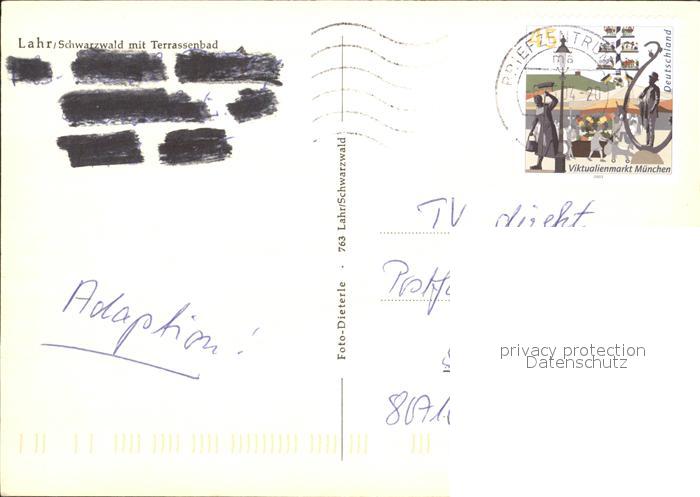 Lahr/Schwarzwald mit Terrassenbad
45
Deutschland
BRIEFZENTRUM
Viktualienmarkt München
2003
763 Lahr/Schwarzwald
Foto-Dieterle
TV direkt
Postf
Adaption!
privacy protection
Datenschutz